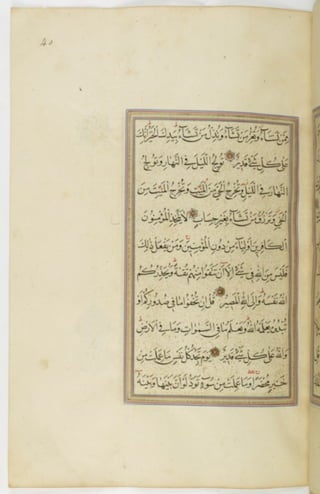 40
مِمَّن تَشَآءُ وَتُعِزُّ مَن تَشَآءُ وَتُذِلُّ مَن تَشَآءُ بِيَدِكَ الْخَيْرُ إِنَّكَ
عَلَى كُلِّ شَيْءٍ قَدِيرٌ تُولِجُ اللَّيْلَ فِي النَّهَارِ وَتُولِجُ
النَّهَارَ فِي اللَّيْلِ وَتُخْرِجُ الْحَيَّ مِنَ الْمَيِّتِ وَتُخْرِجُ الْمَيِّتَ مِنَ
الْحَيِّ وَتَرْزُقُ مَن تَشَآءُ بِغَيْرِ حِسَابٍ لَا يَتَّخِذِ الْمُؤْمِنُونَ
الْكَافِرِينَ أَوْلِيَآءَ مِن دُونِ الْمُؤْمِنِينَ وَمَن يَفْعَلْ ذَلِكَ
فَلَيْسَ مِنَ اللَّهِ فِي شَيْءٍ إِلَّا أَن تَتَّقُوا مِنْهُمْ تُقَاةً وَيُحَذِّرُكُمُ
اللَّهُ نَفْسَهُ وَإِلَى اللَّهِ الْمَصِيرُ قُلْ إِن تُخْفُوا مَا فِي صُدُورِكُمْ أَوْ
تُبْدُوهُ يَعْلَمْهُ اللَّهُ وَيَعْلَمُ مَا فِي السَّمَوَاتِ وَمَا فِي الْأَرْضِ
وَاللَّهُ عَلَى كُلِّ شَيْءٍ قَدِيرٌ يَوْمَ تَجِدُ كُلُّ نَفْسٍ مَا عَمِلَتْ مِنْ
خَيْرٍ مُحْضَرًا وَمَا عَمِلَتْ مِن سُوٓءٍ تَوَدُّ لَوْ أَنَّ بَيْنَهَا وَبَيْنَهُ